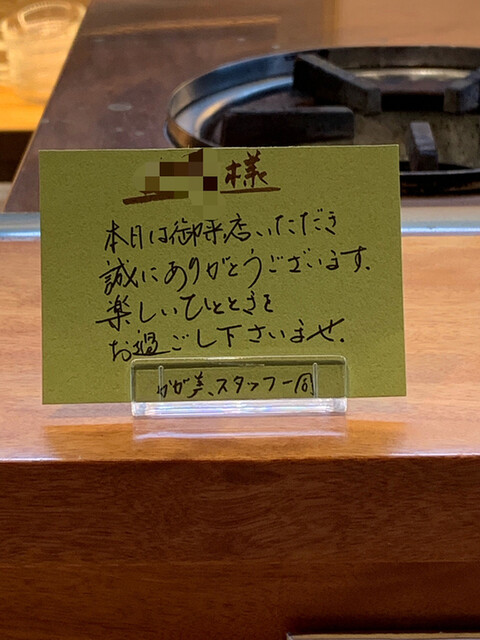 様
本日は御来店いただき
誠にありがとうございます。
楽しいひとときを
お過ごし下さいませ。
かが美、スタッフ一同